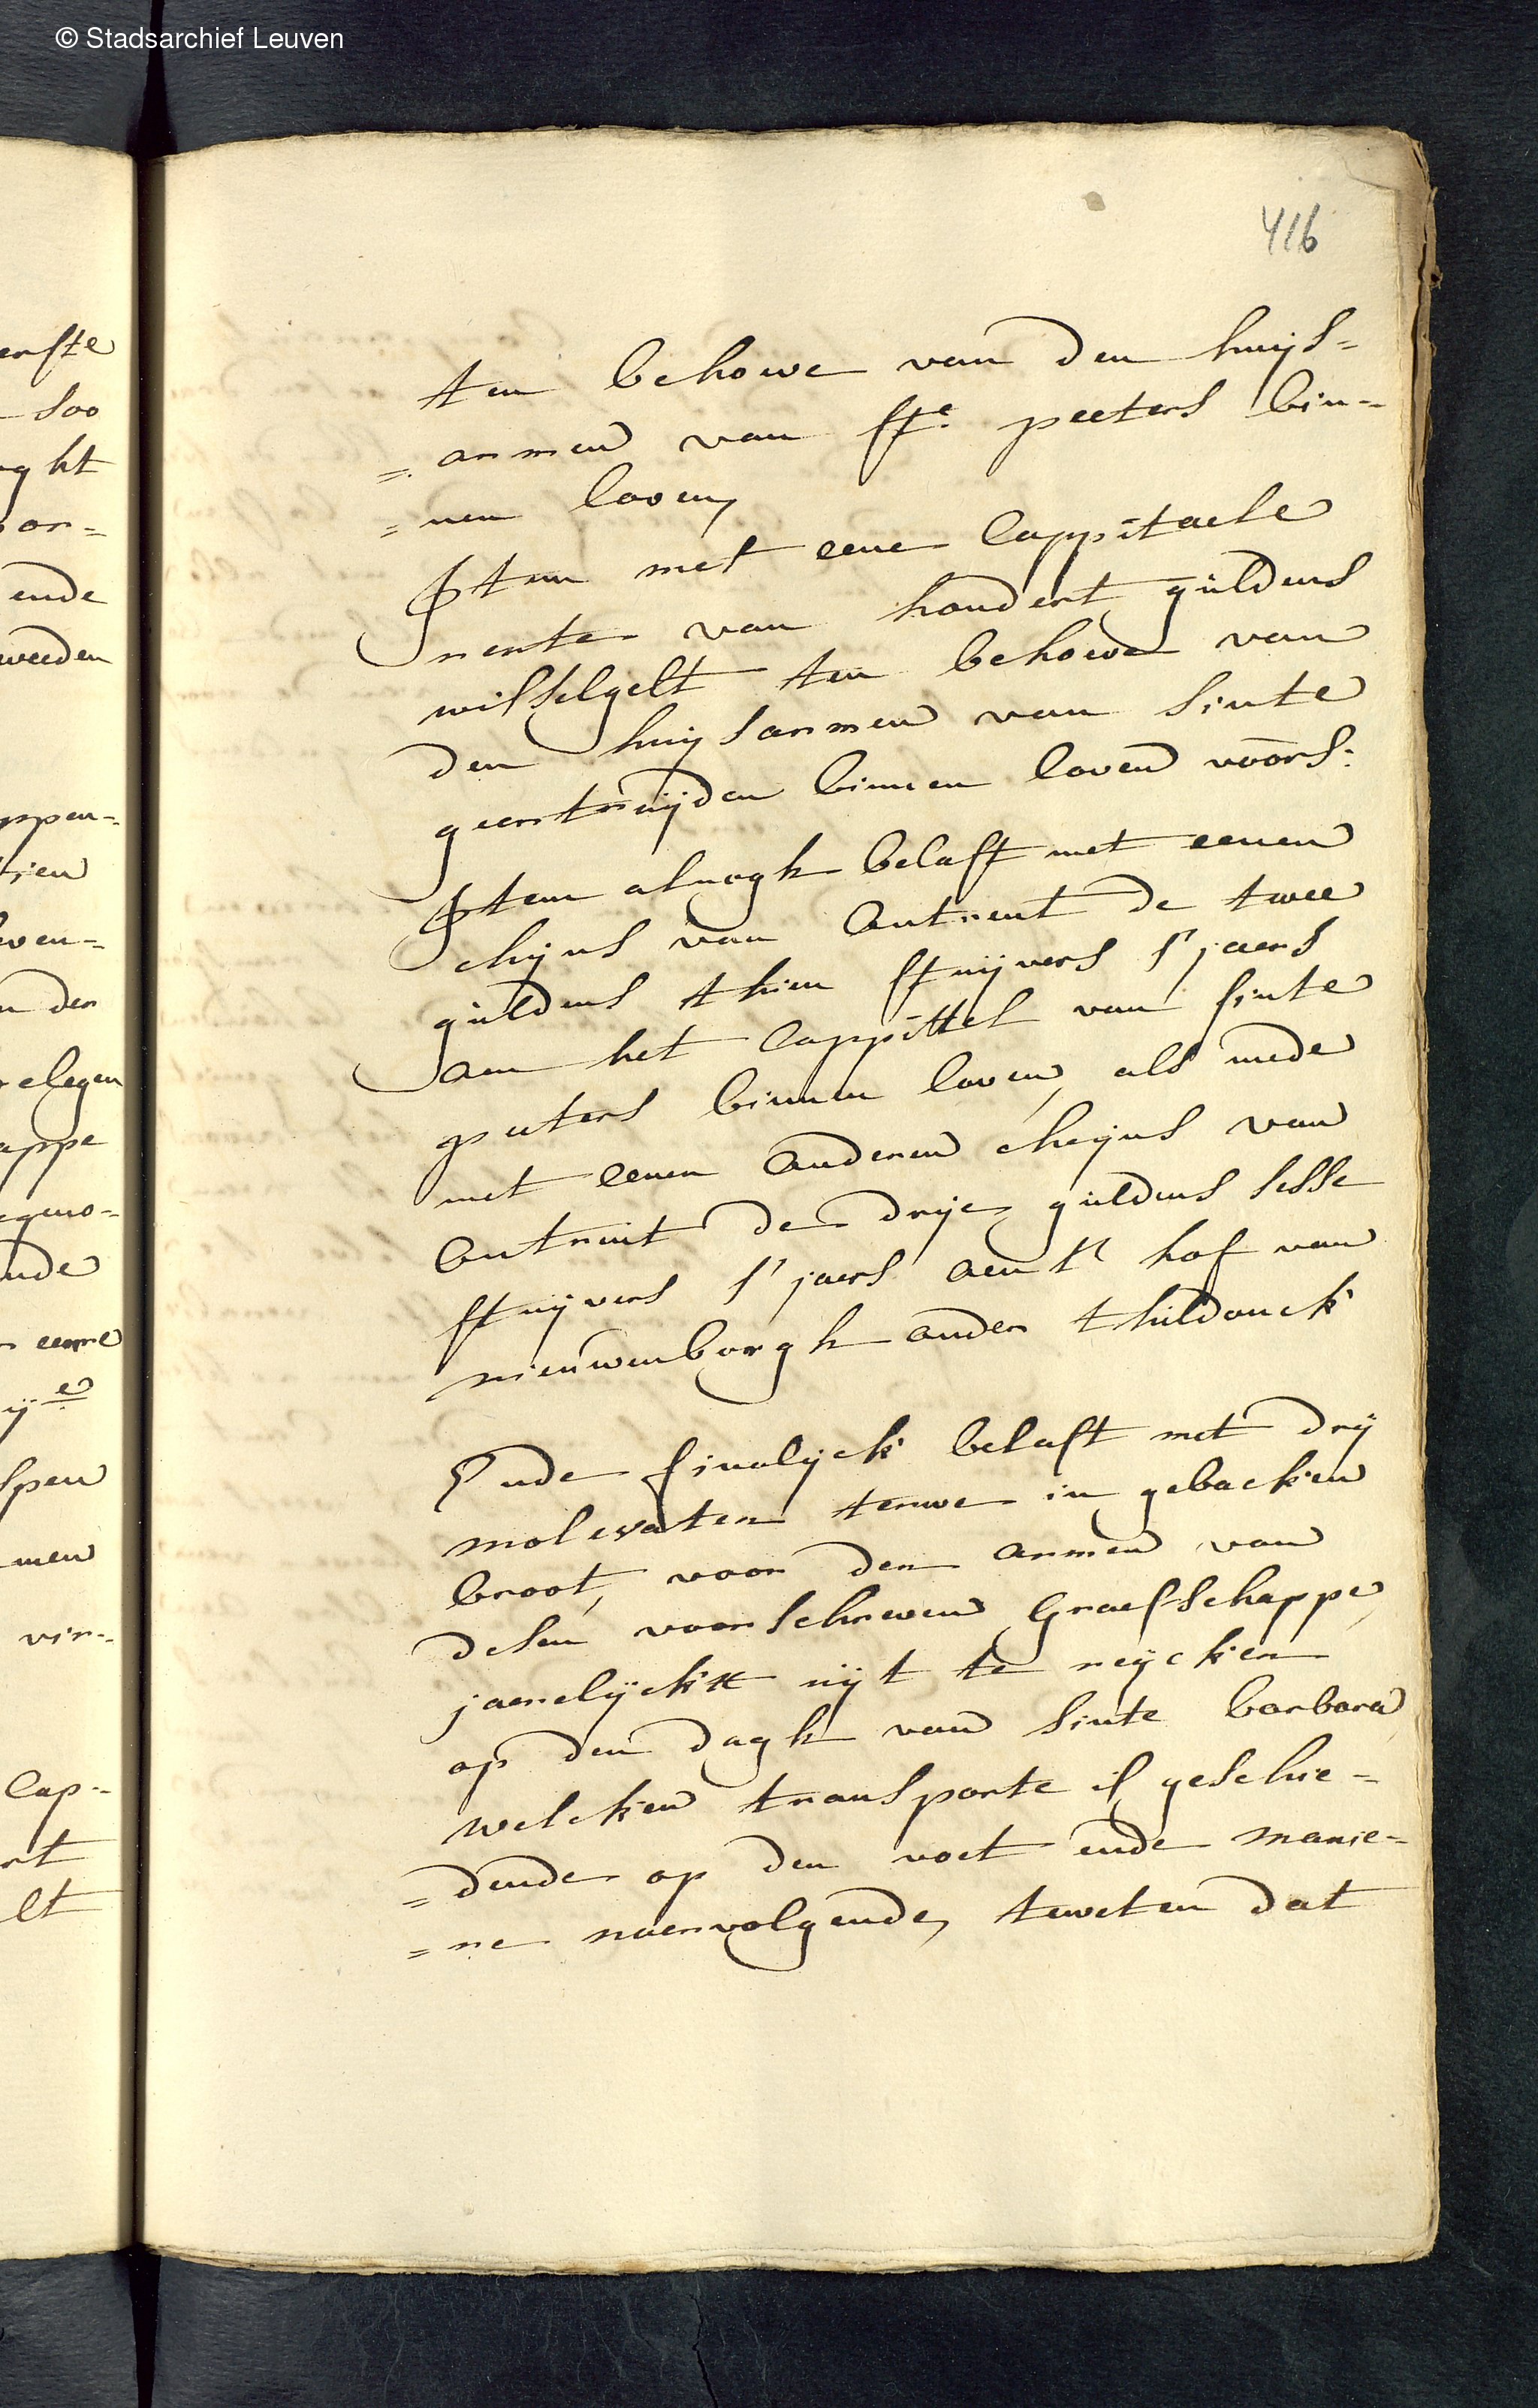 © Stadsarchief Leuven
416
erfte
soo
ght
or=
ende
weeden
ppen=
wen=
n der
elegen
appe
ende
eene
spen
men
vir=
Cap=
rt
lt
ten behoeve van den huijs=
=armen van ste. peeters bin=
=nen loven,
Item met eene Cappitaele
rente van hondert guldens
wisselgelt ten behoeve van
den huijsarmen van Sinte
geertruijden binnen loven voors:
Item alnogh belast met eenen
chijns van ontrent de twee
guldens thien stuijvers s'jaers
aen het Cappittel van sinte
peeters binnen loven, als mede
met eenen anderen cheijns van
ontrent de drije guldens sesse
stuijvers s'jaers aen 't hof van
nieuwenborgh onder thildonck
Ende finalijck belast met drij
molevaten terwe in gebacken
broot, voor den armen van
desen voorschreven Graefschappe
jaerelijckx uijt te reijcken
op den dagh van Sinte barbara
welcken transporte is geschie=
=dende op den voet ende manie=
=re naervolgende, teweten dat